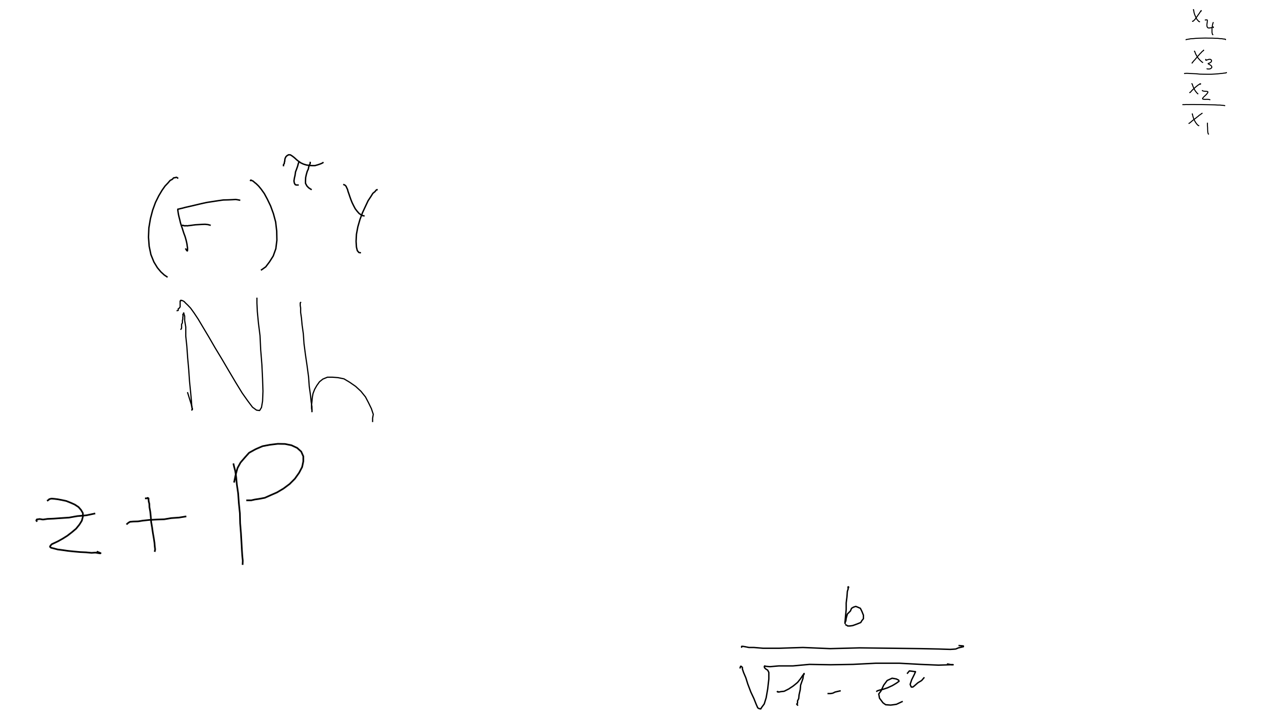 x_4
x_3
x_2
x_1
(F)^π Y
N h
z + P
b
√1 - e^2